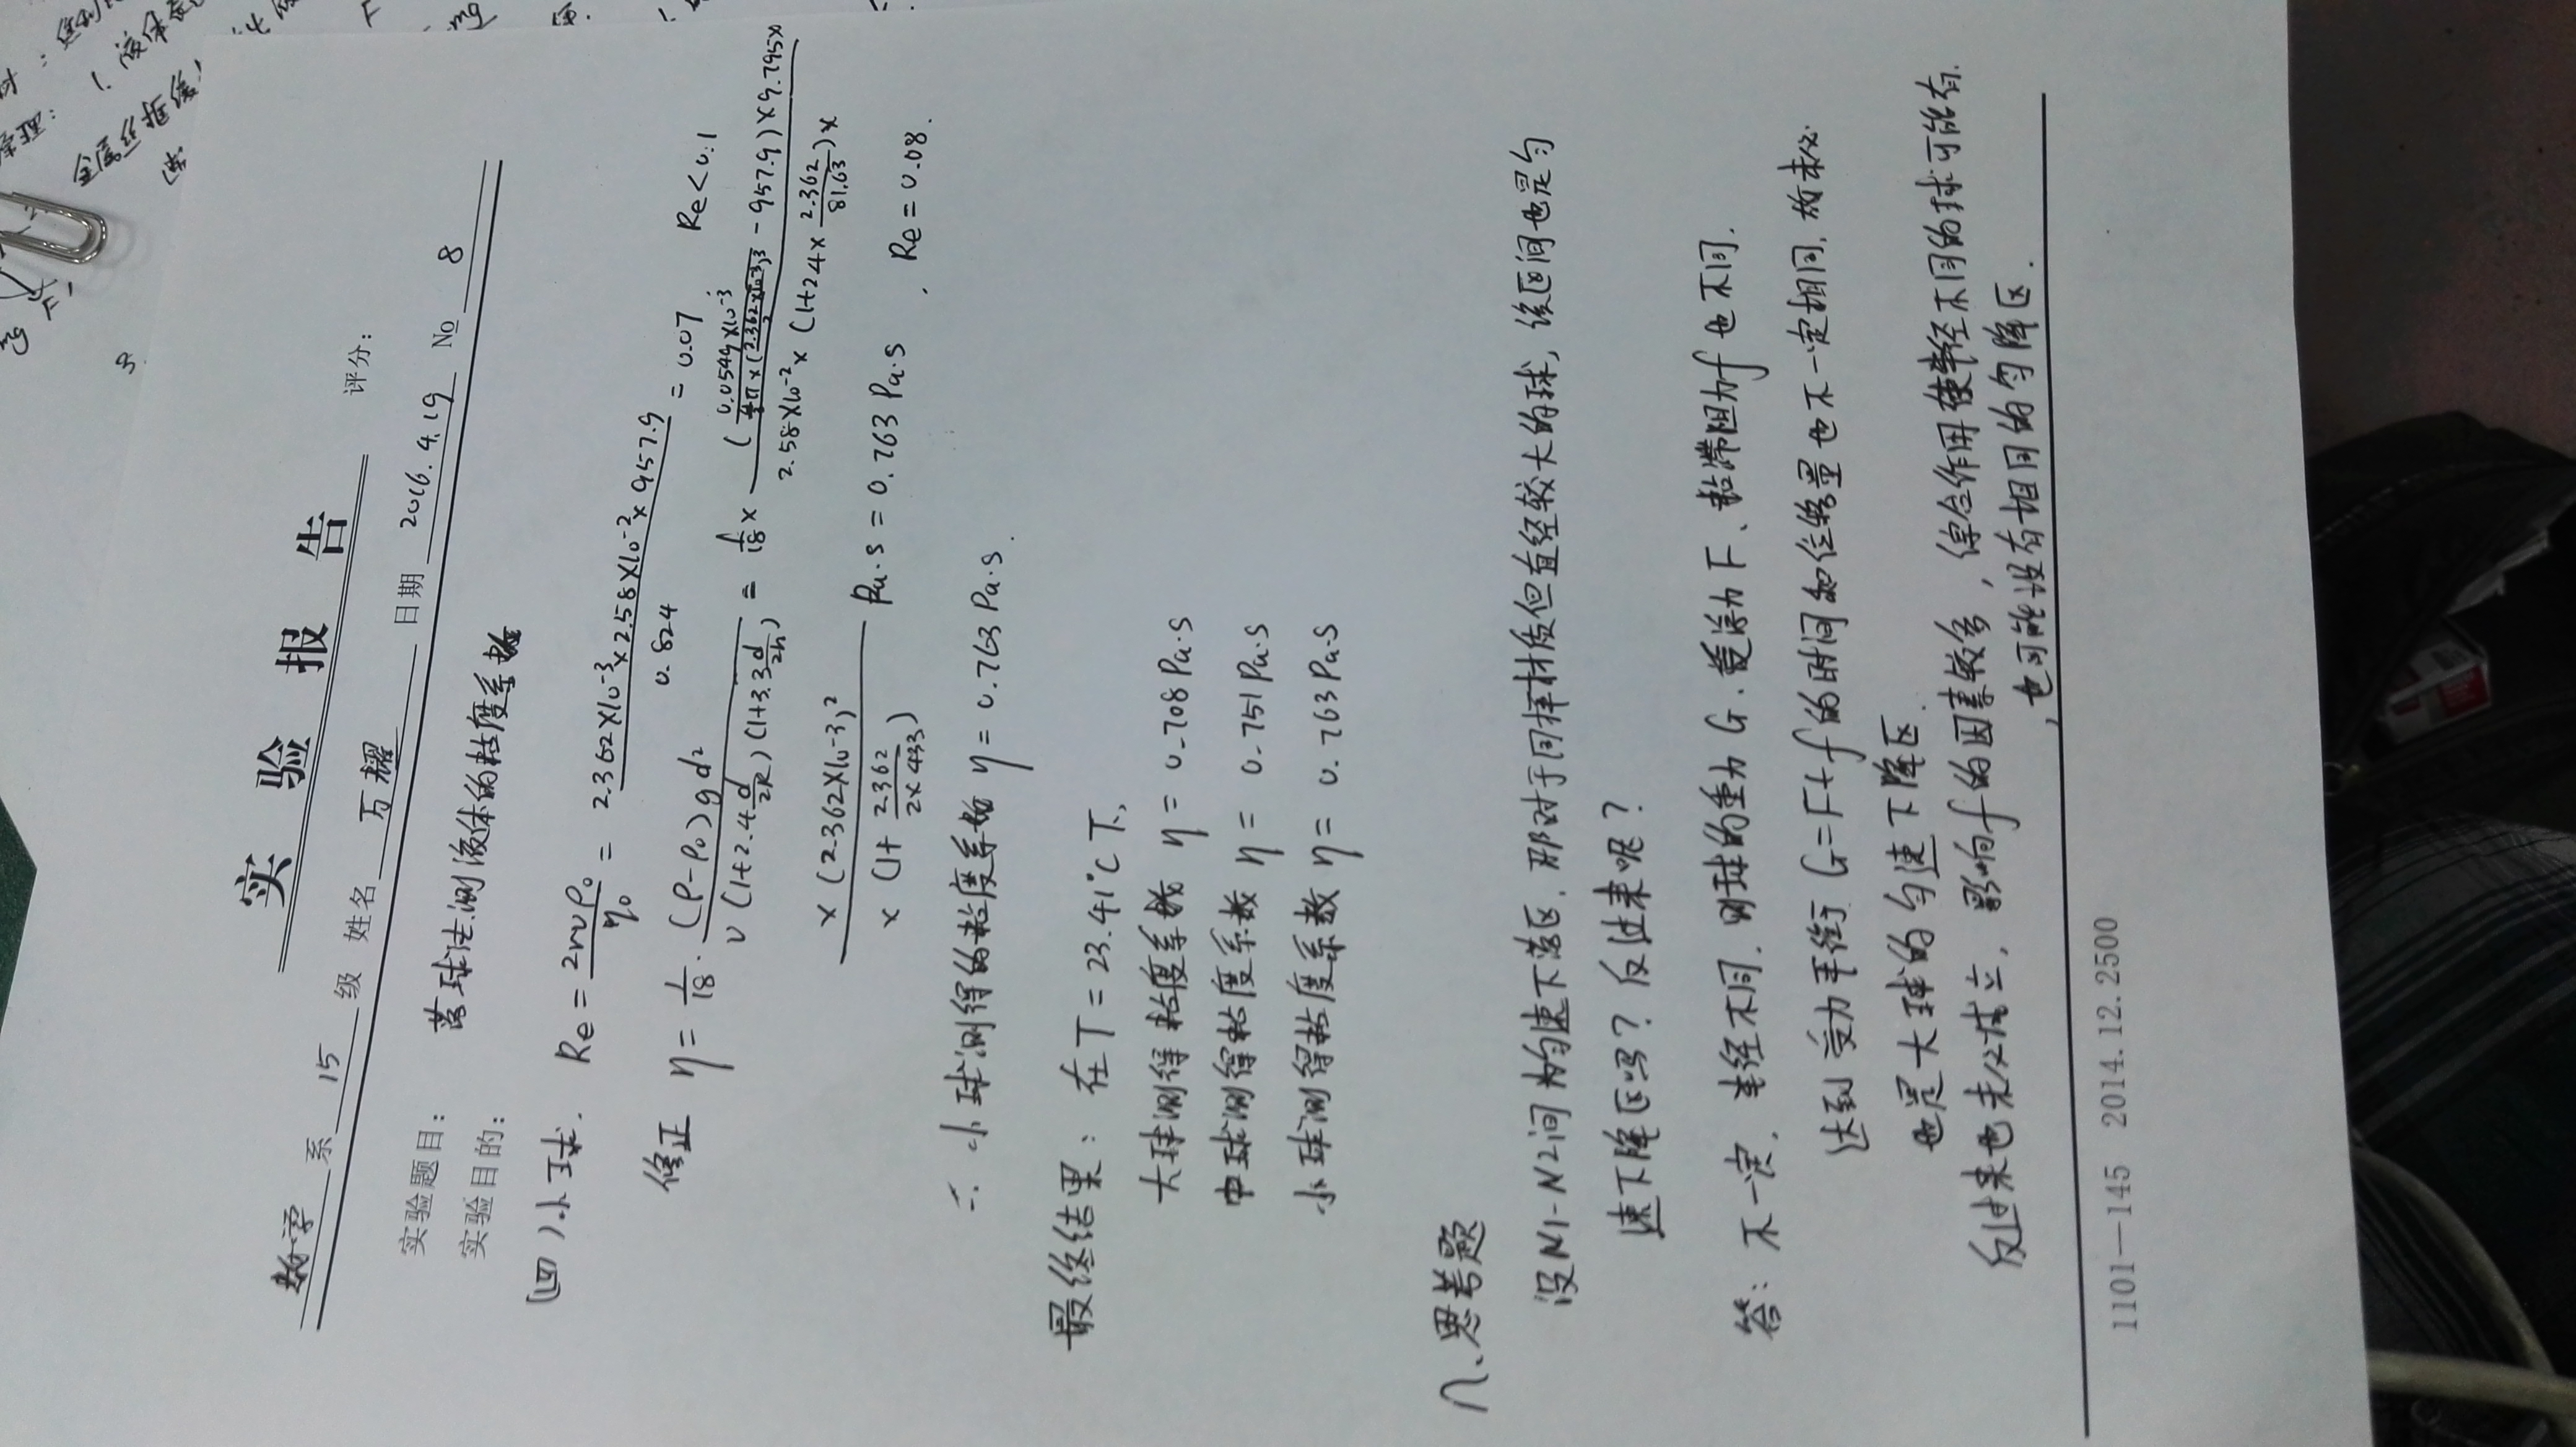 实 验 报 告
评分:
数学 系 15 级 姓名 万耀 日期 2016.4.19 No 8
实验题目: 落球法测液体的粘度系数
实验目的:
(四)小球. Re = 2rvρ₀/η₀ = 2.362×10⁻³×2.58×10⁻²×957.9/0.824 = 0.07, Re<0.1
修正 η = 1/18 · (ρ-ρ₀)gd²/v(1+2.4 d/2R)(1+3.3 d/2h) = 1/18 × (0.0549×10⁻³/(4/3 π×(2.362×10⁻³/2)³) - 957.9)×9.795×/2.58×10⁻²×(1+2.4×2.362/81.63)×
×(2.362×10⁻³)²/×(1+ 2.362/2×433) Pa·s = 0.763 Pa·s , Re = 0.08.
∴ 小球测得的粘度系数 η = 0.763 Pa·s.
最终结果: 在T = 23.41°C下,
大球测得粘度系数 η = 0.708 Pa·s
中球测得粘度系数 η = 0.751 Pa·s
小球测得粘度系数 η = 0.763 Pa·s
八、思考题
设N1-N2间为匀速下落区,那对于同样材质但直径较大的球,该区间也是匀
速下降区吗?反过来呢?
答: 不一定. 半径不同, 则球的重力G.浮力F、粘滞阻力f也不同.
达到受力平衡 G=F+f的时间和位移量也不一定相同, 故未必
也是大球的匀速下降区.
反过来也未必成立, 影响f的因素较多, 综合作用使半径不同的球可能有
,也可能没有相同的匀降区.
1101—145 2014.12.2500